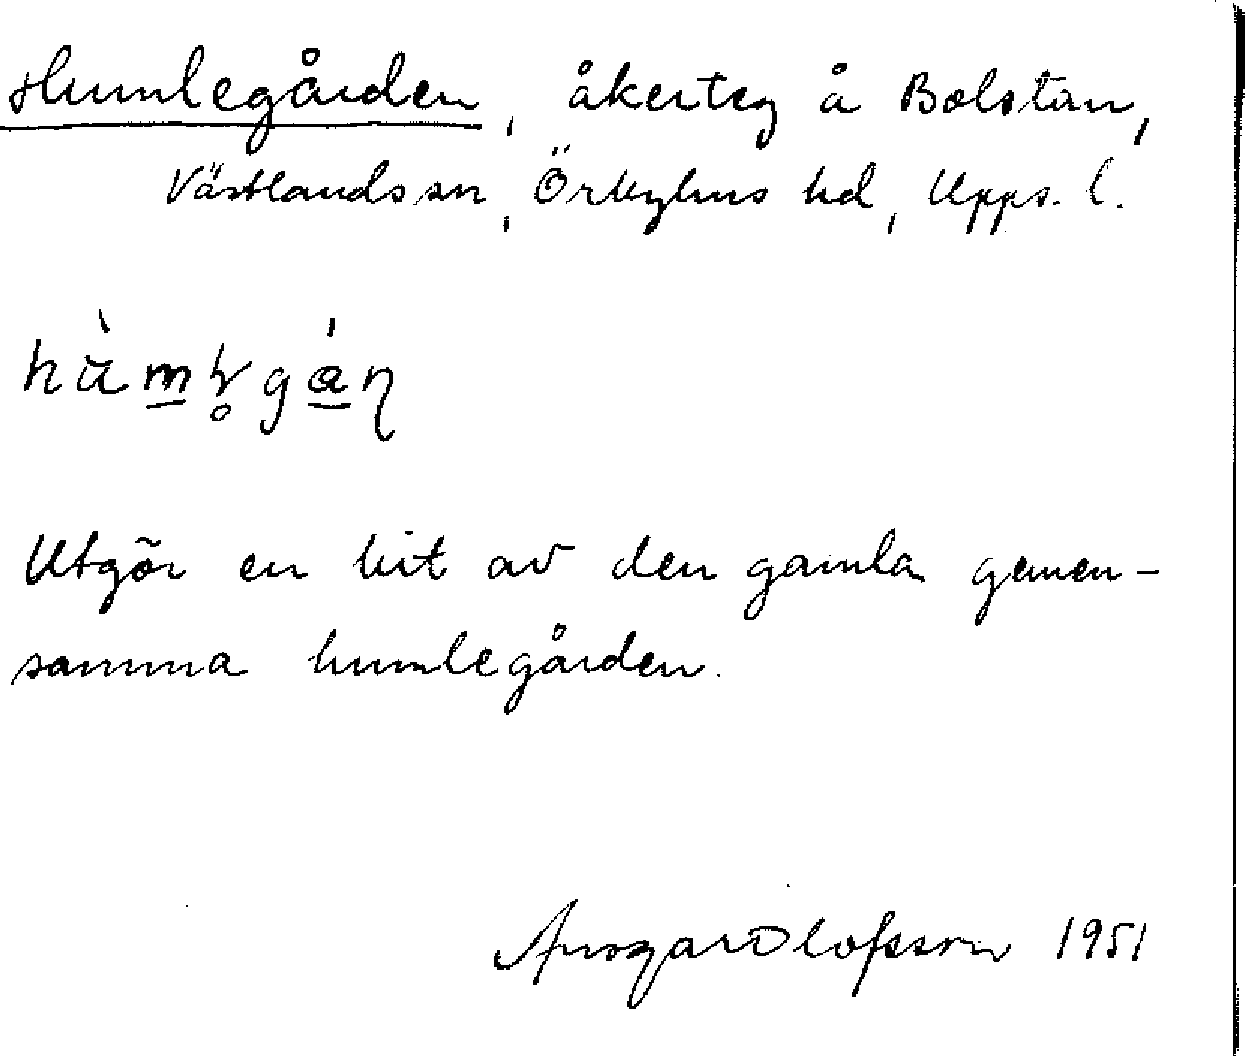 Humlegården, åkerteg å Bolstan,
Västlands sn, Örbyhus hd, Upps. l.
Utgör en bit av den gamla gemen-
samma humlegården.
Ansgar Olofsson 1951